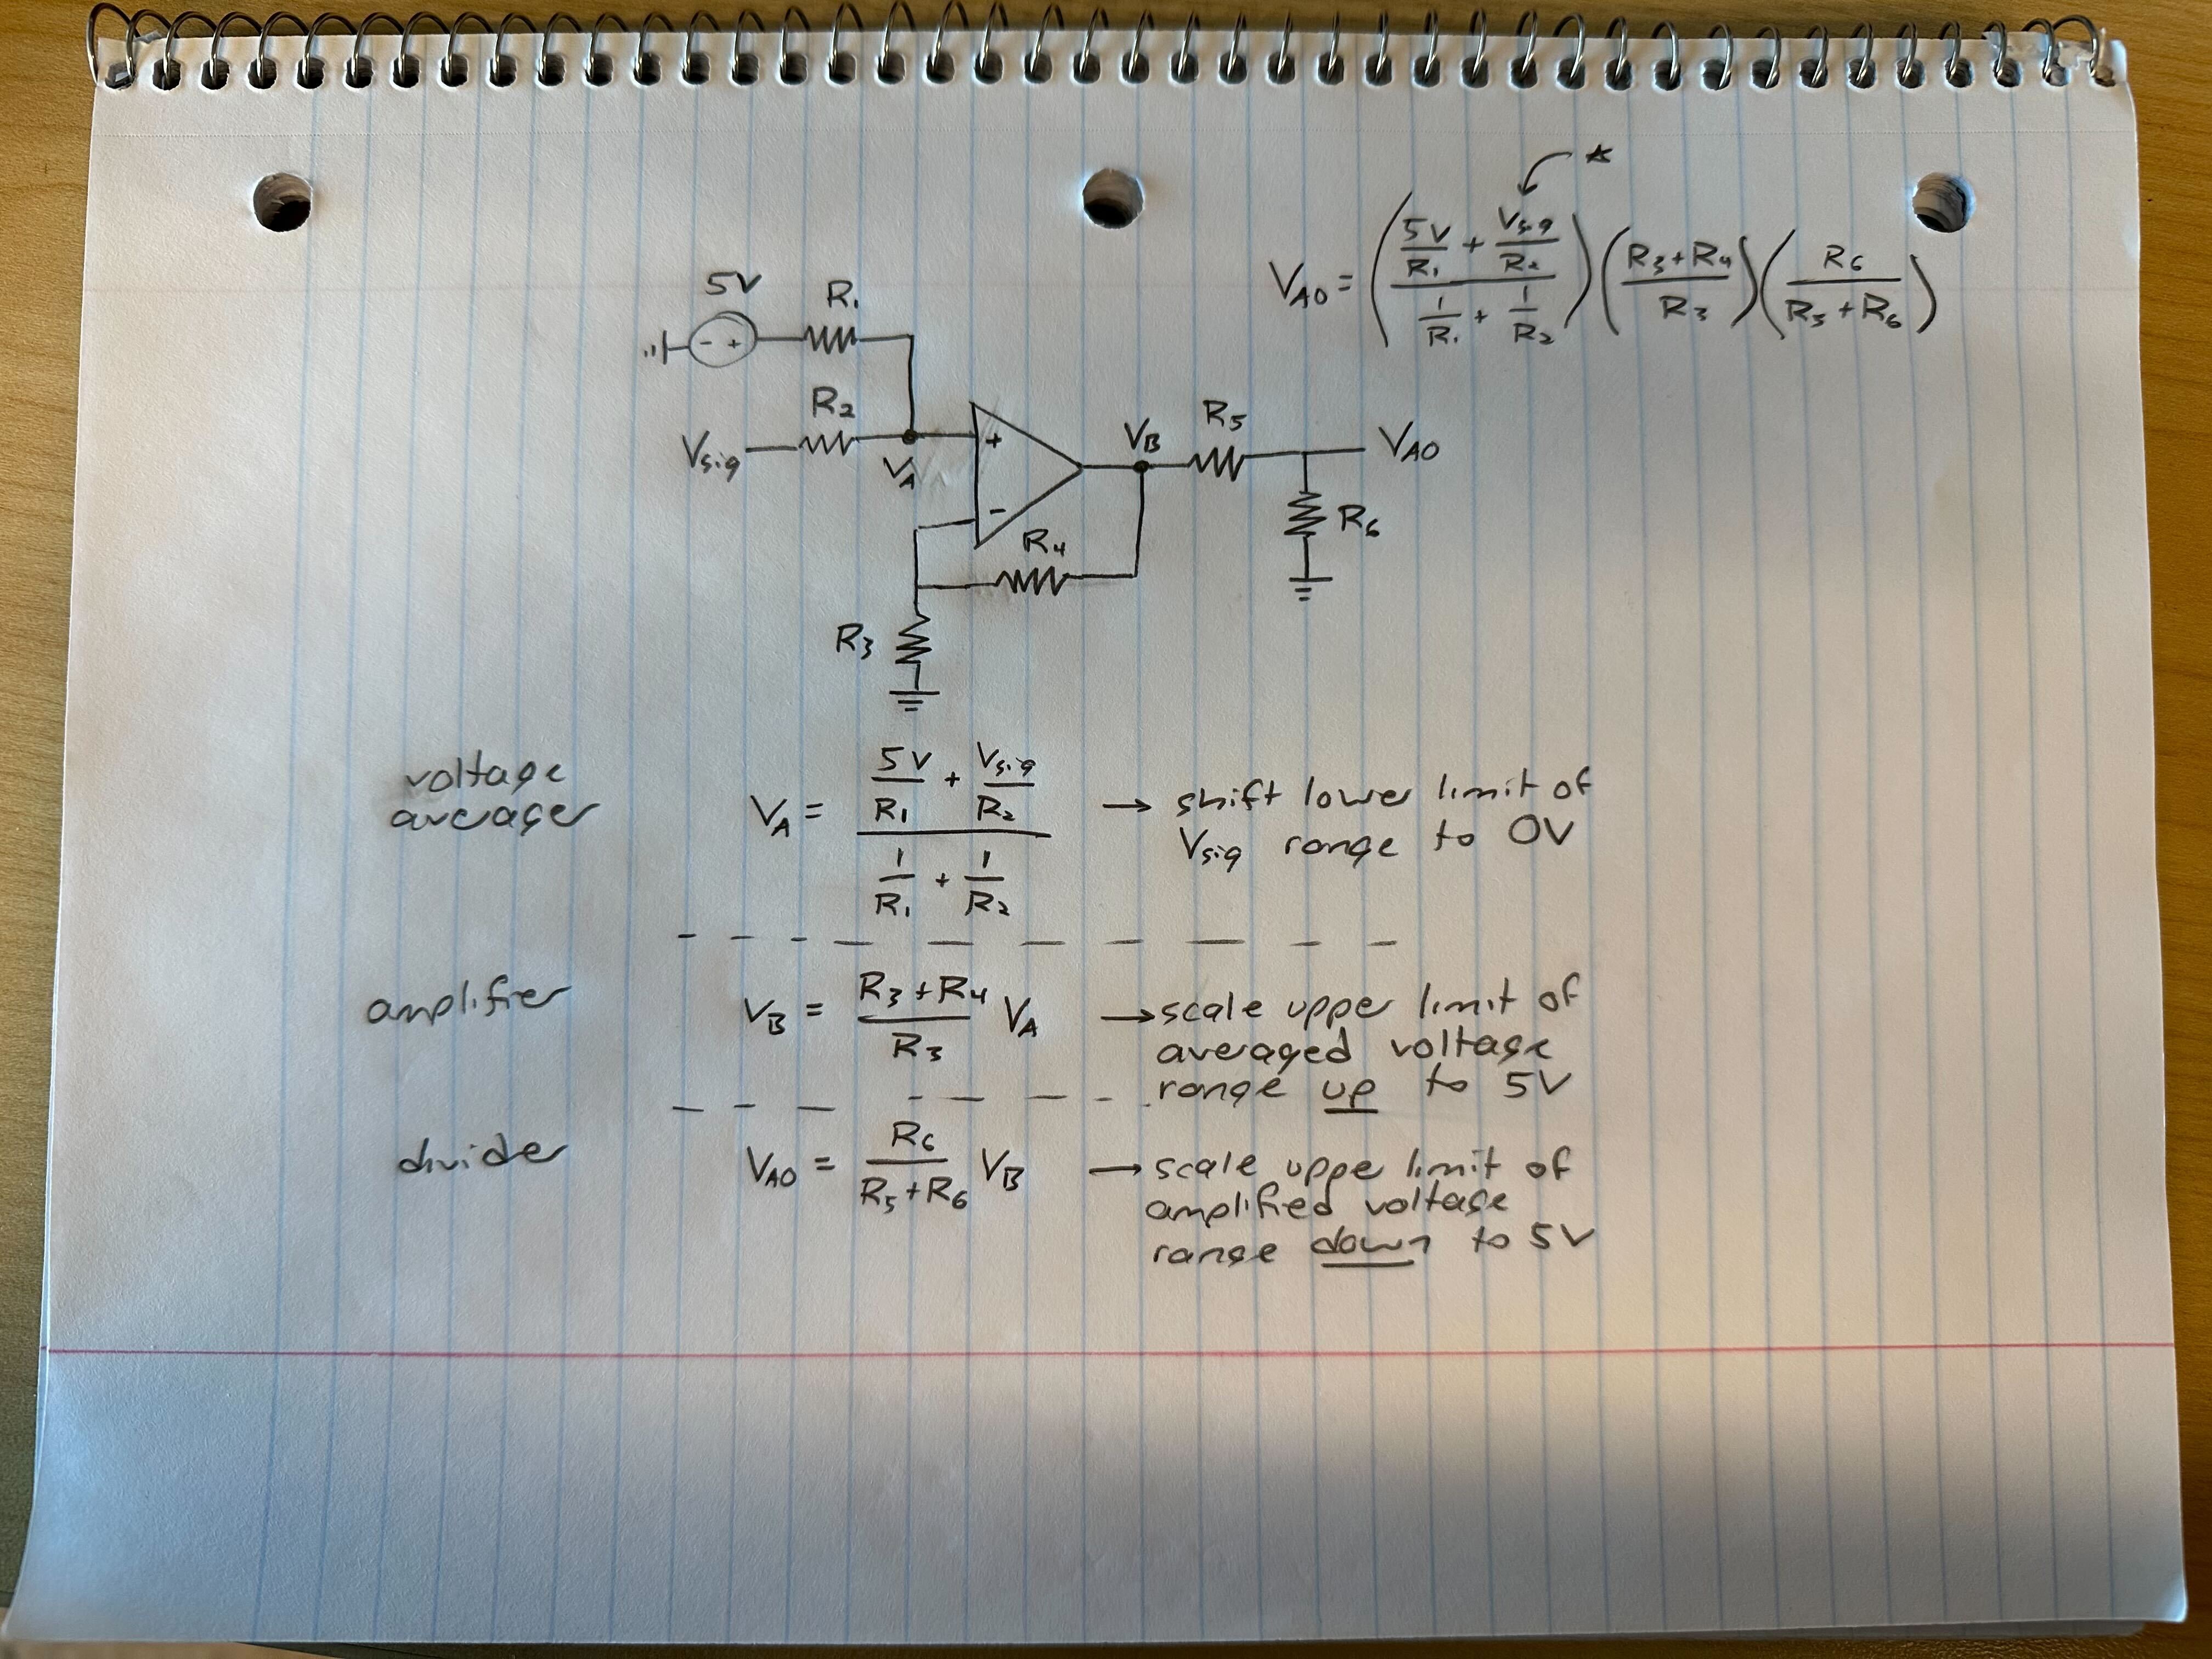 ★
V_AO = ( (5V/R₁ + Vsig/R₂) / (1/R₁ + 1/R₂) ) ( (R₃+R₄)/R₃ ) ( R₆/(R₅+R₆) )
5V
R₁
- +
R₂
Vsig
V_A
+
-
V_B
R₅
V_AO
R₆
R₄
R₃
voltage
averager
V_A = (5V/R₁ + Vsig/R₂) / (1/R₁ + 1/R₂)
→ shift lower limit of
Vsig range to 0V
amplifier
V_B = (R₃+R₄)/R₃ V_A
→ scale upper limit of
averaged voltage
range up to 5V
divider
V_AO = R₆/(R₅+R₆) V_B
→ scale upper limit of
amplified voltage
range down to 5V